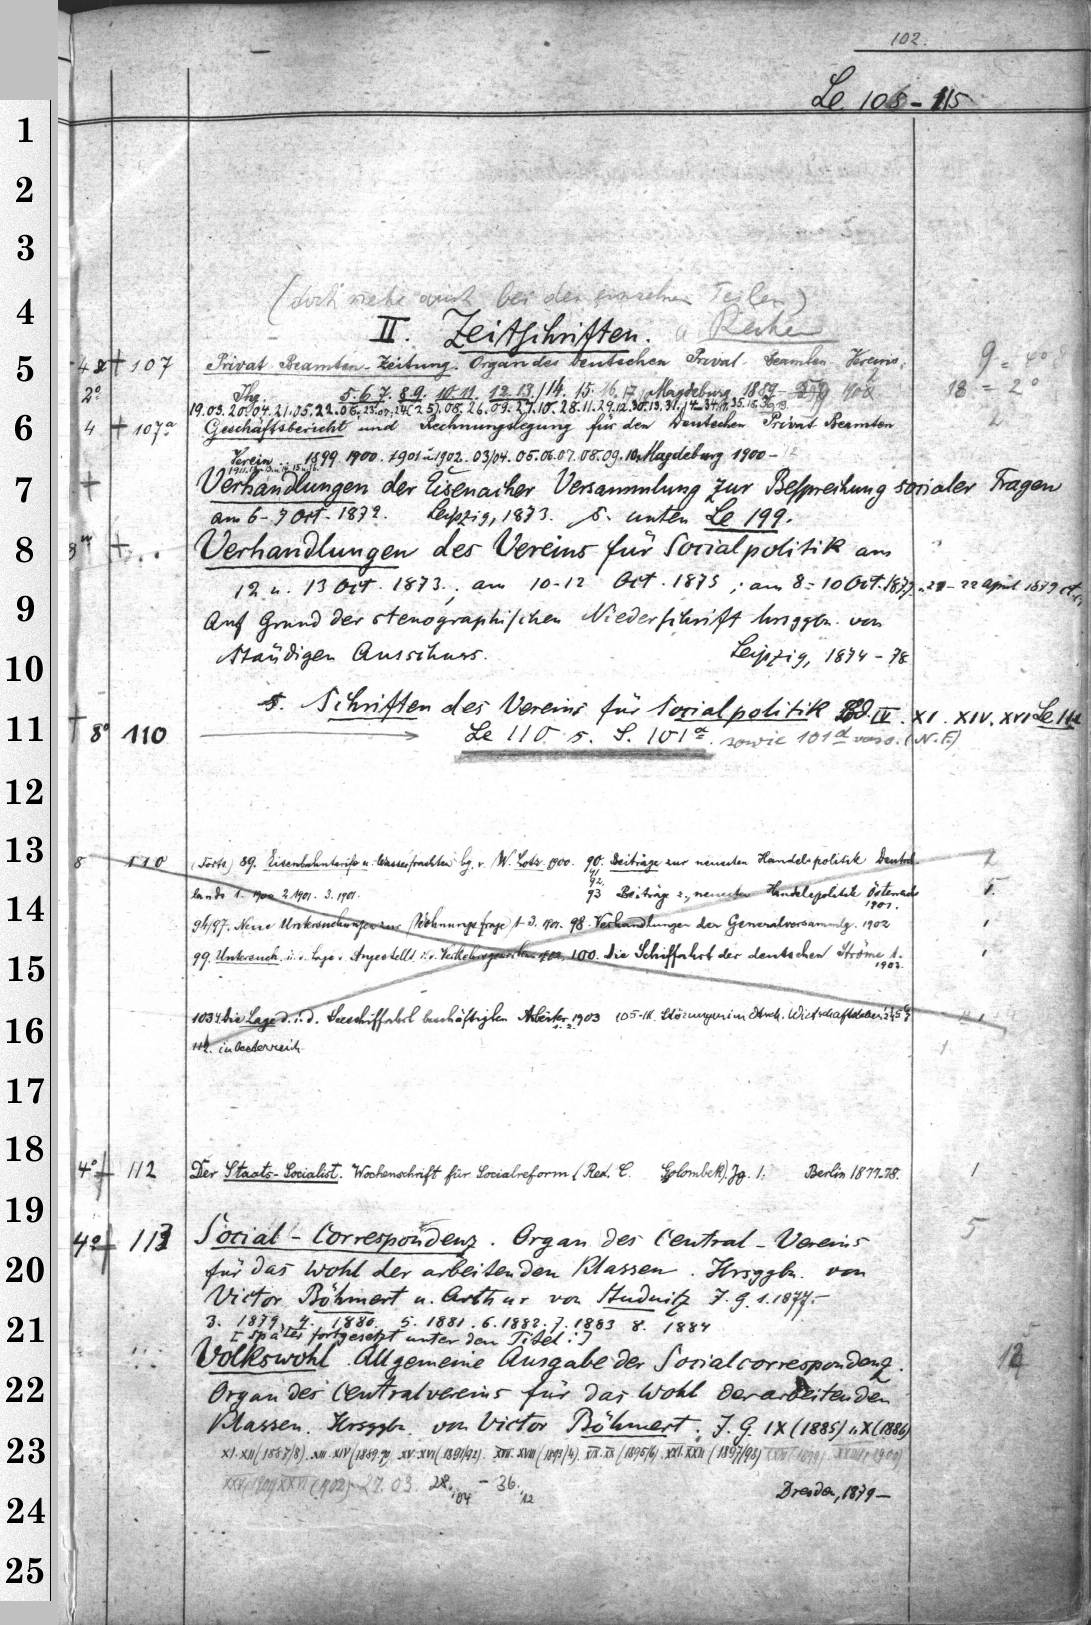 102.
Le 106-115
1
2
3
(doch siehe auch bei den einzelnen Teilen)
4
II. Zeitschriften. Reihen
5
4 + 107 Privat-Beamten-Zeitung. Organ des Deutschen Privat-Beamten-Vereins. 9 = 4°
2° Jhg. 5. 6. 7. 8. 9. 10. 11. 12. 13. 14. 15. 16. 17. Magdeburg 1889 18 = 2°
19.03. 20.04. 21.05. 22.06. 23.07. 24. (25).08. 26.09. 27.10. 28.11. 29.12. 30.13. 31.14
6
4 + 107a Geschäftsbericht und Rechnungslegung für den Deutschen Privat Beamten 2
Verein. 1899. 1900. 1901 u 1902. 03/04. 05. 06. 07. 08. 09. 10. Magdeburg 1900-
7
+ Verhandlungen der Eisenacher Versammlung zur Besprechung socialer Fragen
am 6-7 Oct. 1872. Leipzig, 1873. s. unten Le 199.
8
+ Verhandlungen des Vereins für Socialpolitik am
12 u. 13 Oct. 1873; am 10-12 Oct. 1875; am 8-10 Oct. 1877. 21-22 April 1879
9
Auf Grund der stenographischen Niederschrift hrsggbn. von
10
Ständigen Ausschuss. Leipzig, 1874-78
s. Schriften des Vereins für Socialpolitik Bd. IV. XI. XIV. XVI Le 111
11
+ 8° 110 Le 110 s. S. 101a. sowie 101d vaso. (N.F.)
12
13
8 110 (Forts) 89. Eisenbahntarife u. Wasserfrachten hg. v. W. Lotz. 1900. 90. Beiträge zur neuesten Handelspolitik Deutsch 2
91.
92.
lands 1. 1900 2. 1901. 3. 1901. 93 Beiträge z. neuesten Handelspolitik Österreichs 5.
1901.
14
94/97. Neue Untersuchungen zur Wohnungsfrage 1-3. 1901. 98. Verhandlungen der Generalversammlg. 1902 1
15
99. Untersuch. ü. d. Lage d. Angestellt. i. d. Verkehrsgewerben 1902. 100. Die Schiffahrt der deutschen Ströme 1. 1
1903.
16
103 Die Lage d. i. d. Seeschiffahrt beschäftigten Arbeiter 1903 105-11. Störungen im dtsch. Wirtschaftsleben
1. 2.
112. in Oesterreich. 1
17
18
4° + 112 Der Staats-Socialist. Wochenschrift für Socialreform. (Red. C. Golombek). Jg. 1. Berlin 1877-78. 1
19
4° + 113 Social-Correspondenz. Organ des Central-Vereins 5
20
für das Wohl der arbeitenden Klassen. Hrsggbn. von
Victor Böhmert u. Arthur von Studnitz J.G. 1. 1877.-
21
3. 1879. 4. 1880. 5. 1881. 6. 1882. 7. 1883 8. 1884
[Später fortgesetzt unter dem Titel:]
Volkswohl. Allgemeine Ausgabe der Socialcorrespondenz.
22
Organ des Centralvereins für das Wohl der arbeitenden
Klassen. Hrsggbn. von Victor Böhmert. J.G. IX (1885) u. X (1886)
23
XI. XII (1887/8). XIII. XIV (1889. 90). XV. XVI (1891/92). XVII. XVIII (1893/4) XIX. XX (1895/6). XXI. XXII (1897/98) XXIII (1899). XXIV (1900)
XXV (1901) XXVI (1902) 27. 03. 28./04 - 36./12 Dresden, 1879-
24
25